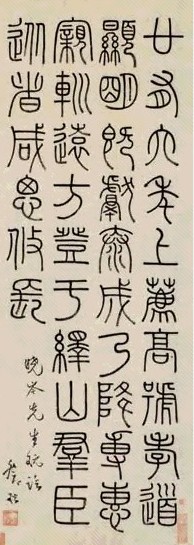 廿有六年上薦高號孝道
顯明既獻泰成乃降專惠
寴䡅遠方登于繹山羣臣
從者咸思攸長
曉岑先生